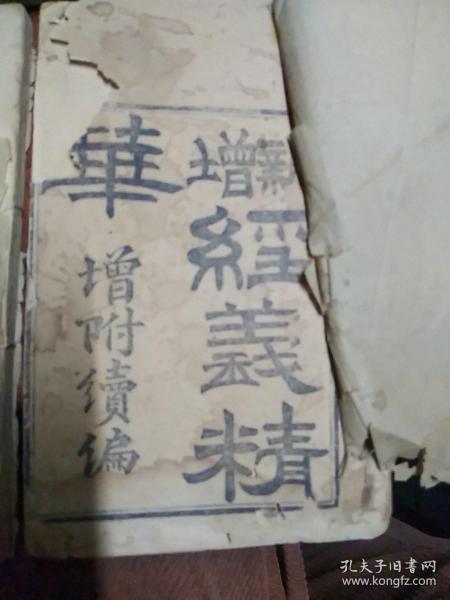 新增
經義精
華
增附續編
孔夫子旧书网
www.kongfz.com